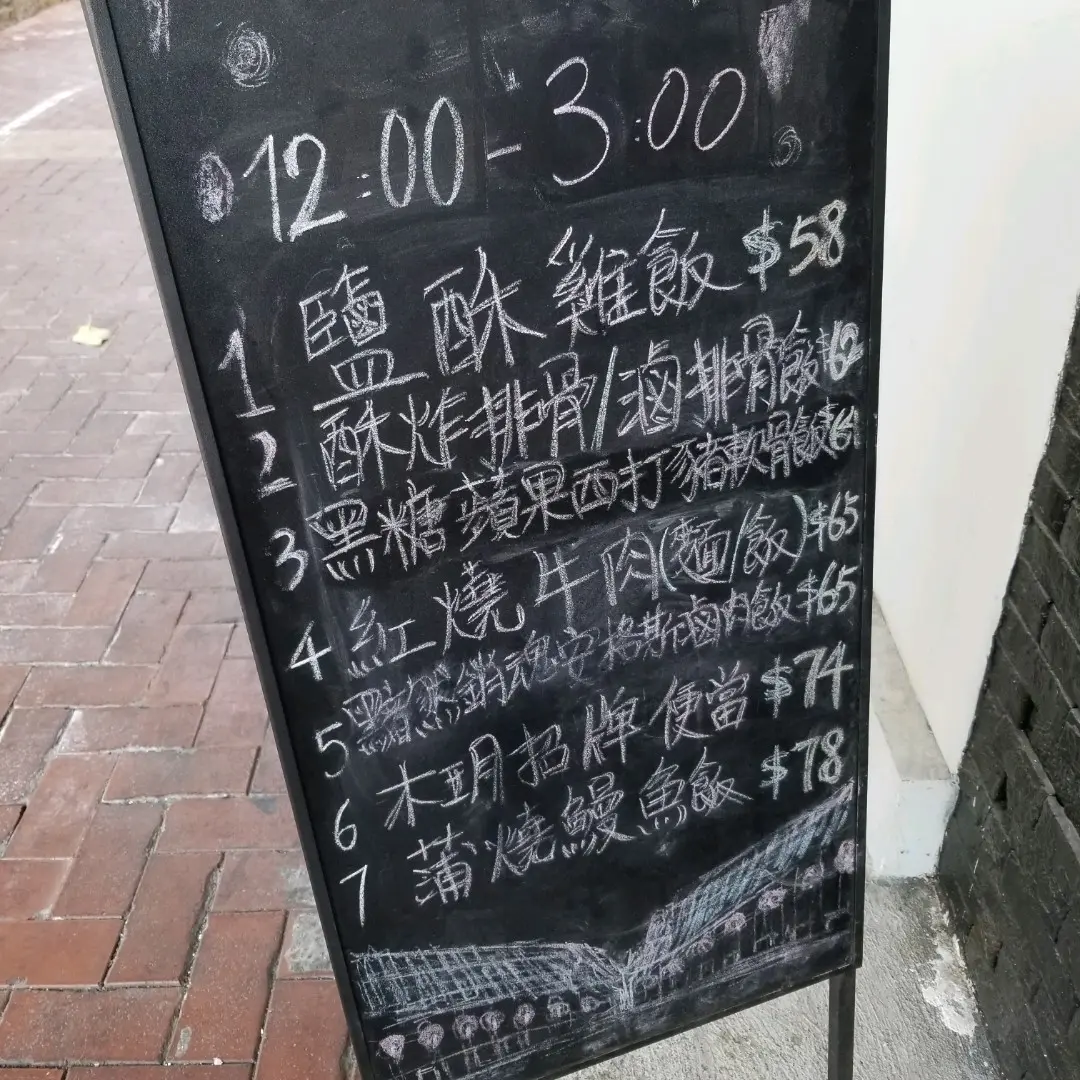 12:00-3:00
1 鹽酥雞飯 $58
2 酥炸排骨/滷排骨飯 $62
3 黑糖蘋果西打豬軟骨飯 $61
4 紅燒牛肉(麵/飯) $65
5 黯然銷魂安格斯滷肉飯 $65
6 木玥招牌便當 $74
7 蒲燒鰻魚飯 $78